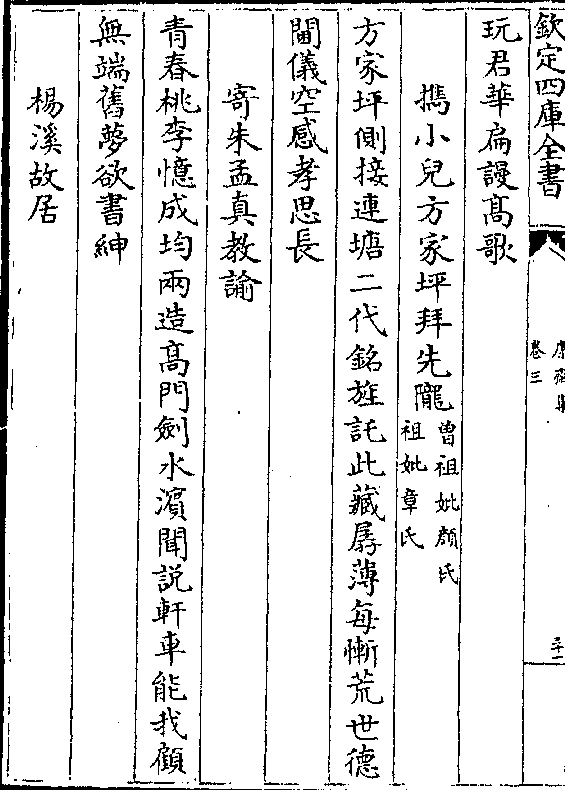 欽定四庫全書
卷三
三十一
玩君華扁謾髙歌
擕小兒方家坪拜先隴曾祖妣顔氏祖妣章氏
方家坪側接連塘二代銘旌託此藏孱薄每慚荒世德
閫儀空感孝思長
寄朱孟真教諭
青春桃李憶成均兩造髙門劍水濱聞説軒車能我顧
無端舊夢欲書紳
楊溪故居